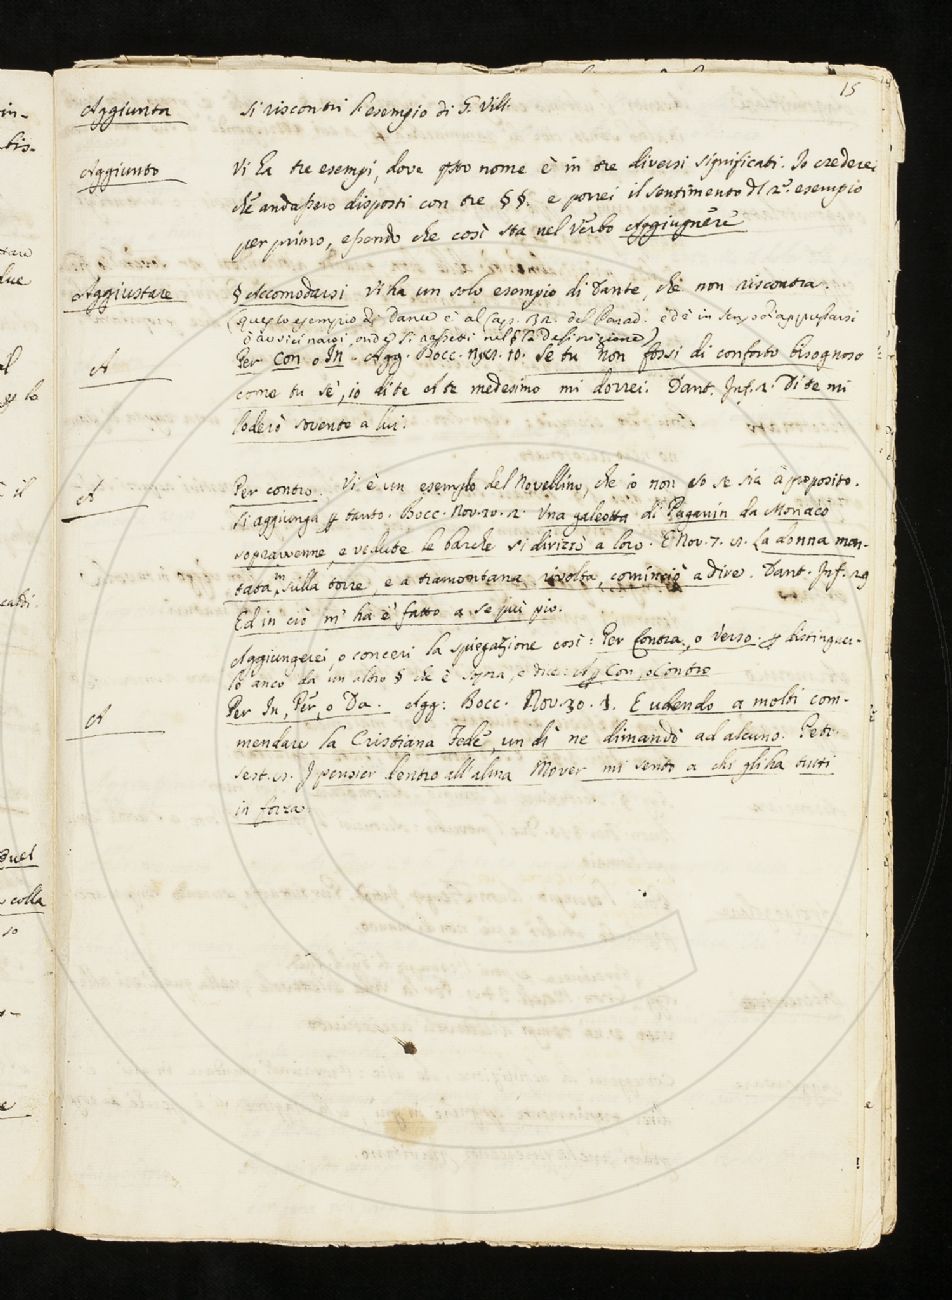 15
Aggiunta Si riscontri l'esempio di G. Vill.
Aggiunto Vi ha tre esempi, dove qsto nome è in tre diversi significati. Io crederei
che andassero disposti con tre §§. e porrei il sentimento dl 2.° esempio
per primo, essendo che così sta nel Verbo Aggiugnere
Aggiustare § Accomodarsi vi ha un solo esempio di Dante, che non riscontra.
(questo esempio di Dante è al Cap. 32. del Parad. ed è in senso di appressarsi
o avvicinarsi, onde si aspetti nel § la definizione)
A Per Con o In. Agg. Bocc. Nov. 10. Se tu non fossi di conforto bisognoso
come tu sè, io di te A te medesimo mi dorrei. Dant. Inf. 2. Di te mi
loderò sovente a lui.
A Per contro. Vi è un esempio del Novellino, che io non so se sia a proposito.
Si aggiunga tanto. Bocc. Nov. 20. 2. Una galeotta di Paganin da Monaco
sopravvenne, e vedute le barche si dirizzò a loro. E Nov. 7. La donna mon-
tata in sulla torre, e a tramontana rivolta, cominciò a dire. Dant. Inf. 29
Ed in ciò m' ha è fatto a se più pio.
Aggiungerei, o conceri la spiegazione così: Per Contra, o verso distinguer-
lo anco da un altro § che è sopra, e dice: A Con, o Contro
A Per In, Per, o Da. Agg: Bocc. Nov. 30. E udendo a molti com-
mendare la Cristiana Fede, un dì ne dimandò ad alcuno. Petr.
Sest. I pensier dentro all'alma Mover mi sento a chi gli ha tutti
in forza.
in-
due
il
Quel
colla
so